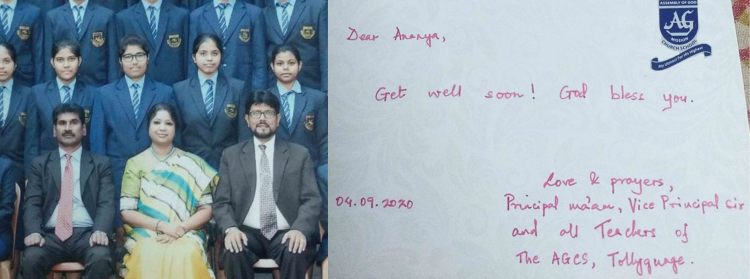 ASSEMBLY OF GOD
AG
MISSION
CHURCH SCHOOL
Dear Ananya,
Get well soon! God bless you.
Love & prayers,
04.09.2020 Principal ma'am, Vice Principal sir
and all Teachers of
The AGCS, Tollygunge.